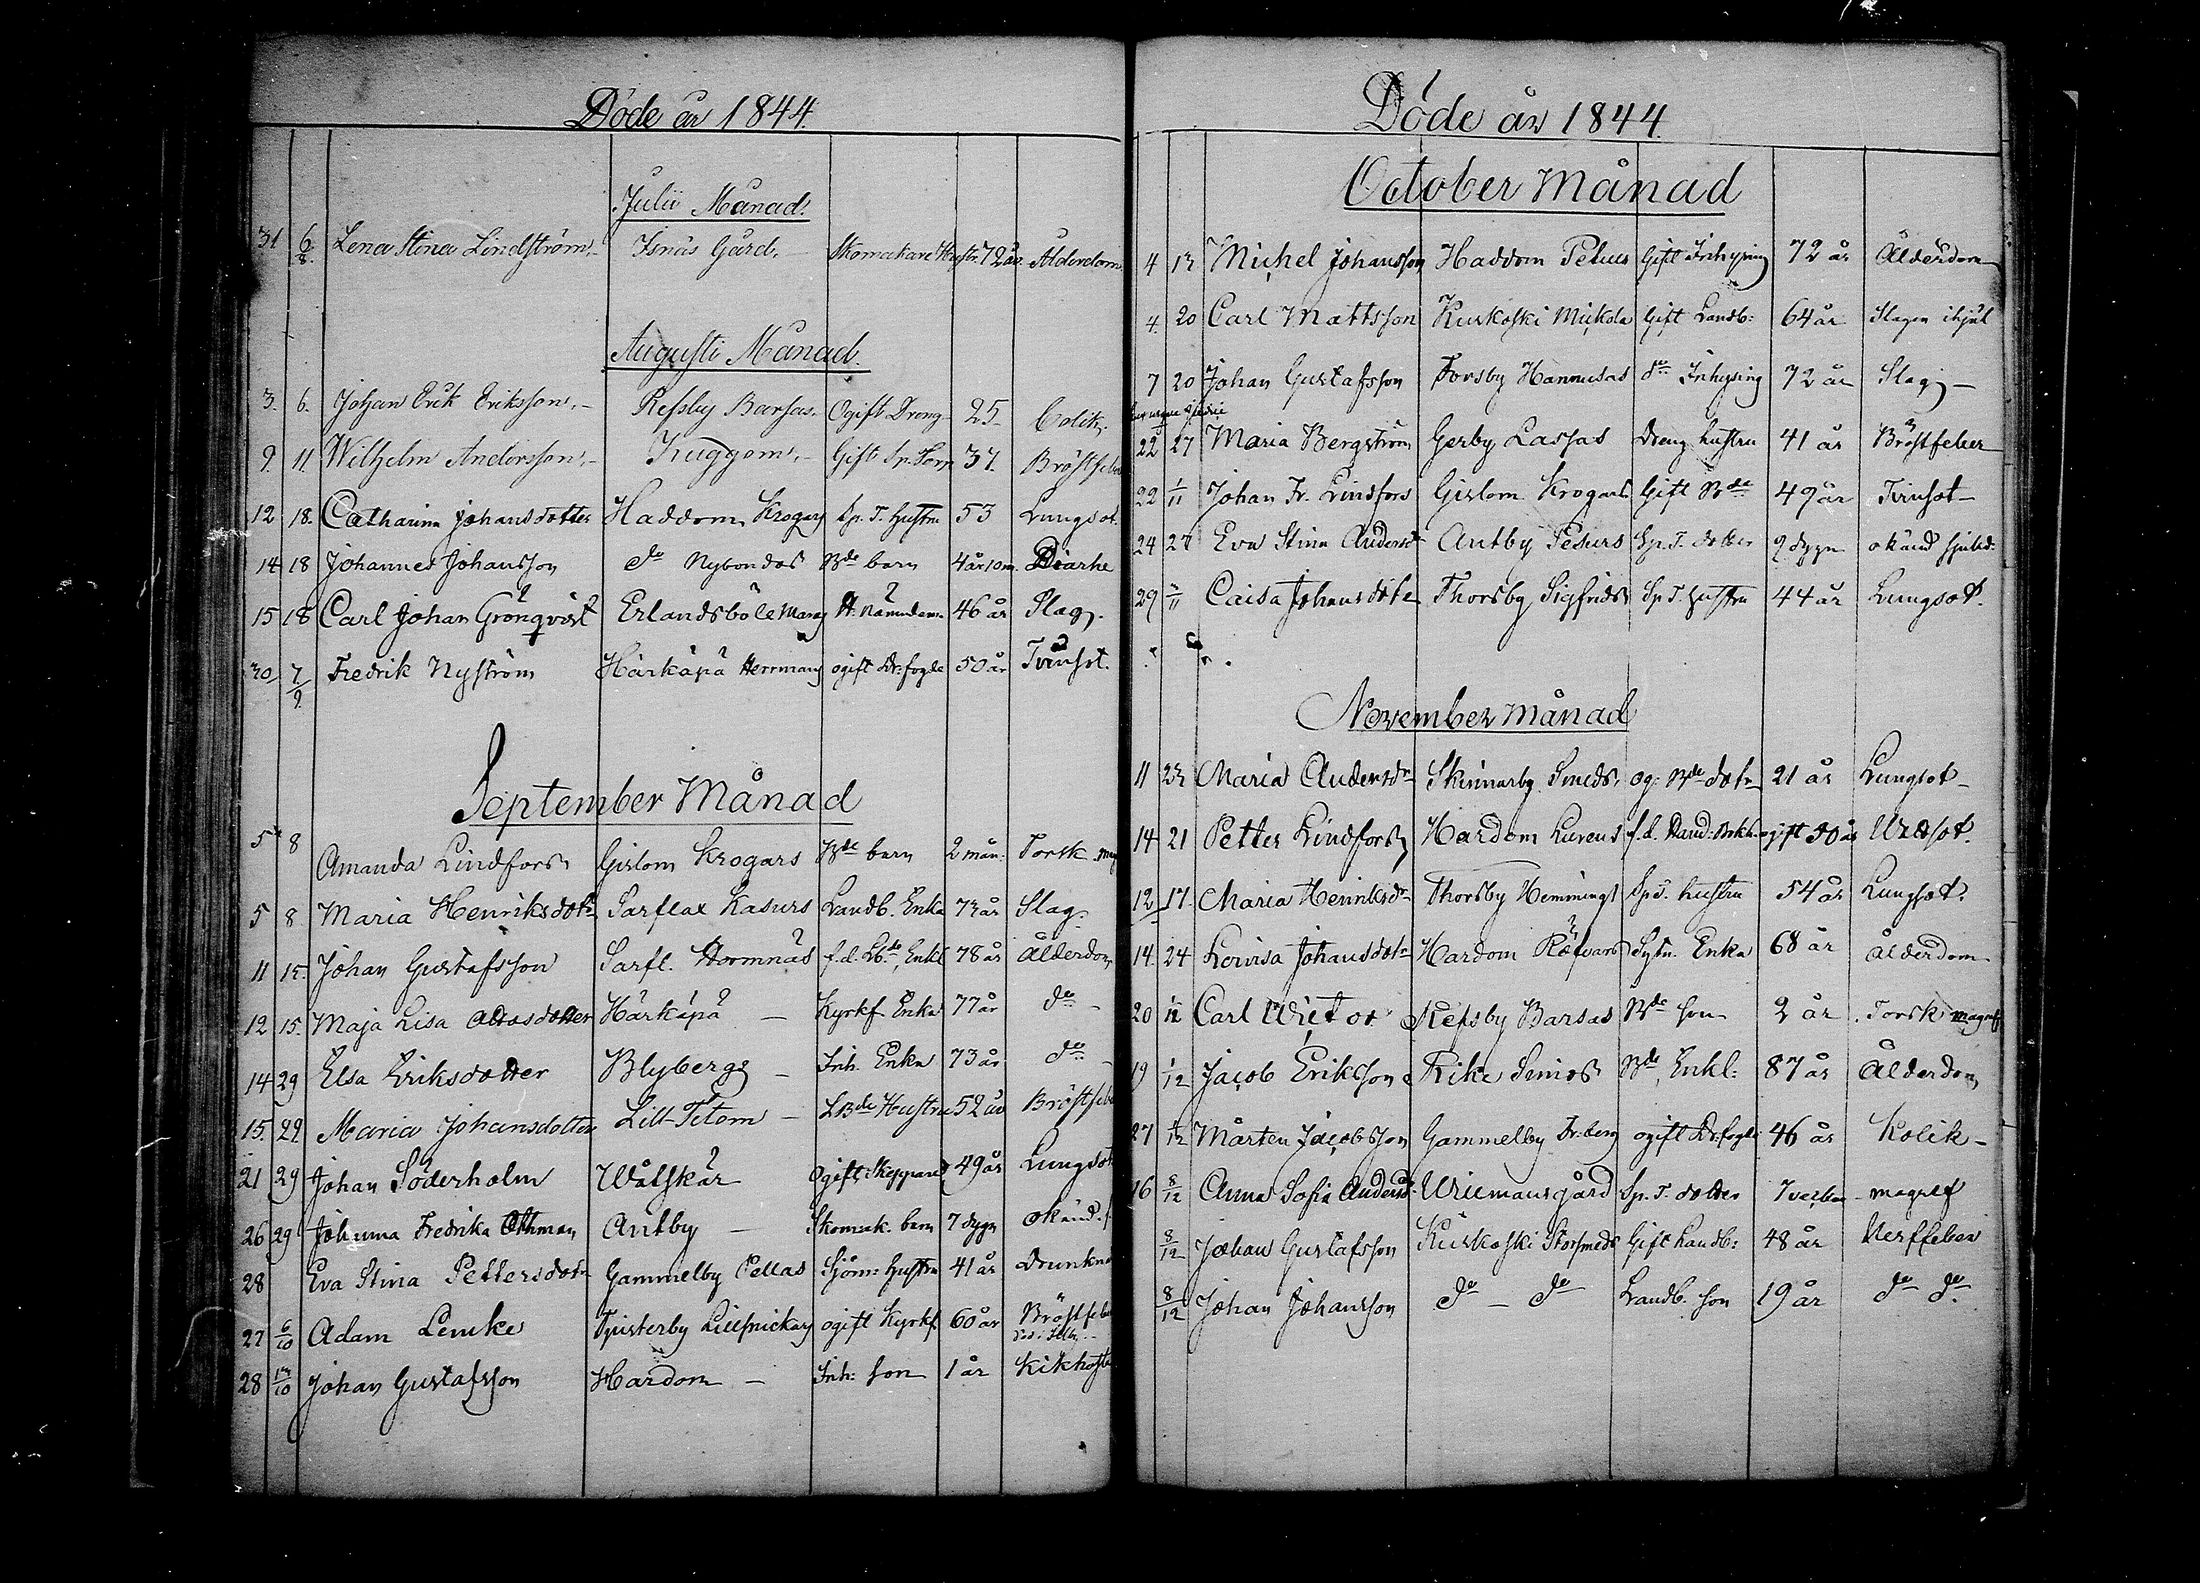 Döde år 1844.
Julii Månad.
31 6/8. Lena Stina Lindström. Isnäs Gård. Skomakare Hustr. 72 år. Ålderdom.
Augusti Månad.
3. 6. Johan Erik Eriksson. Refsby Barsas. Ogift Dreng 25 Colik.
9. 11. Wilhelm Andersson. Kuggom. Gift Sp. Torp 37. Bröstfeber
12 18. Catharina Johansdotter Haddom Krogars Sp. T. Hustru 53 Lungsot.
14 18 Johannes Johansson do Nybondas Bde barn 4 år 10 m. Diarhe
15 18 Carl Johan Grönqvist Erlandsböle 46 år Slag.
30 7/9. Fredrik Nyström Härkäpä Herrmans ogift Dr: fogde 50 år Tvinsot.
September Månad
5 8 Amanda Lindfors Gislom Krogars Bde barn 2 mån. Torsk
5 8 Maria Henriksdotr Sarflax Kasurs Landb. Enka 73 år Slag.
11 15. Johan Gustafsson Sarfl. Hormnäs f.d. Lbde, Enkl 78 år Ålderdom
12 15. Maja Lisa Härkäpä — Kyrkf. Enka 77 år do —
14 29 Elsa Eriksdotter Blybergs — Inh. Enka 73 år do —
15. 29. Maria Johansdotter Lill-Tetom — LBde Hustru 52 år Bröstfeb
21 29 Johan Söderholm Wåtskär Ogift Skeppare 49 år Lungsot
26 29 Johanna Fredrika Öthman Antby — Skomak. barn 7 dygn okänd.
28 Eva Stina Pettersdotr Gammelby Pellas Sjöm: Hustru 41 år drunknad
27 6/10 Adam Lemke Tjusterby Lillsnickars ogift Kyrkf. 60 år Bröstfeber
28 13/10 Johan Gustafsson Hardom — Inh: son 1 år Kikhosta
Döde år 1844.
October Månad
4 13 Michel Johansson Haddom Petus Gift Inhysing 72 år Ålderdom
4. 20 Carl Mattsson Kuskoski Mickola Gift Landb: 64 år Slagen ihjäl
7 20 Johan Gustafsson Forsby Hannusas do Inhysing 72 år Slag —
22 27 Maria Bergström Gerby Lassas Dreng hustru 41 år Bröstfeber
22 1/11 Johan Fr. Lindfors Gislom Krogars Gift Bde 49 år Tvinsot —
24 27 Eva Stina Andersd Antby Pesurs Sp. T. dotter 9 dygn okänd sjukd.
29 3/11 Caisa Johansdote Thorsby Sigfrids Sp. T. hustru 44 år Lungsot.
November månad
11 23 Maria Andersdr Skinnarby Smeds. og: Bde dotr 21 år Lungsot —
14 21 Petter Lindfors Hardom Lurens ogift 50 år
12 17. Maria Henriksdr Thorsby Hemmings Sp. T. hustru 54 år Lungsot.
14. 24 Lovisa Johansdotr Hardom Räfvars Sytn. Enka 68 år ålderdom.
20 1/12 Carl Wictor Refsby Barsas Bde son 2 år Torsk magref
19 1/12 Jacob Eriksson Rike Simos Bde, Enkl: 87 år Ålderdom
27 1/12 Mårten Jacobsson Gammelby ogift Dr: fogde 46 år Kolik —
16 8/12 Anna Sofia Andersd: Uriemansgård Sp. T. dotter 7 veckor magref
8/12 Johan Gustafsson Kuskoski Storsmeds Gift Landb: 48 år Nerffeber
8/12 Johan Johansson do — do Landb. son 19 år do do